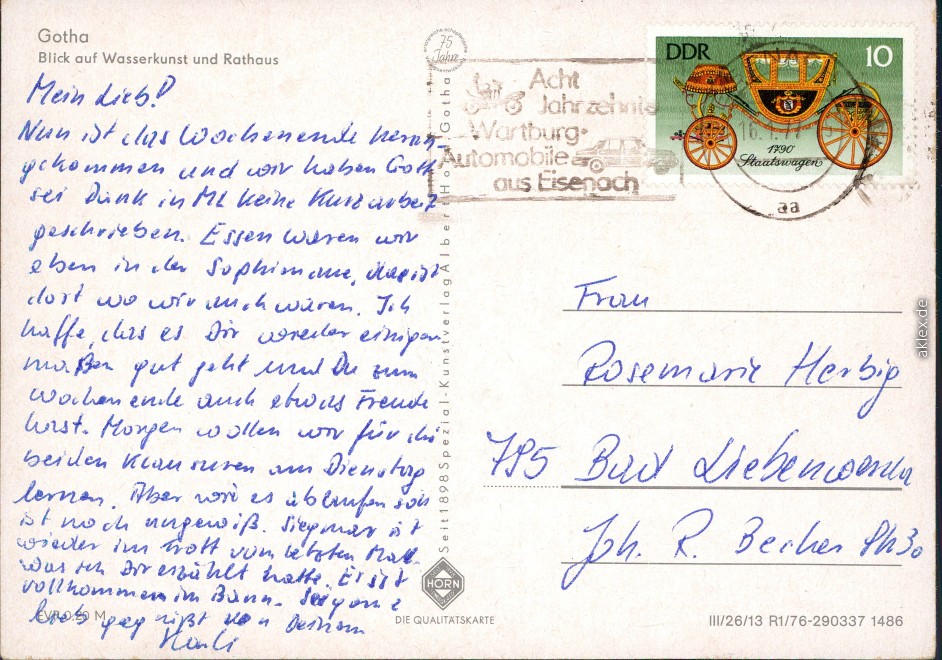 Gotha
Blick auf Wasserkunst und Rathaus
Mein Lieb!
Nun ist das Wochenende heran-
gekommen und wir haben Gott
sei Dank in ML keine Kurzarbeit
geschrieben. Essen waren wir
eben in der das ist
dort wo wir auch waren. Ich
hoffe, das es Dir wieder einiger
maßen gut geht und Du zum
Wochenende auch etwas Freude
hast. Morgen wollen wir für die
beiden Klausuren am Dienstag
lernen. Aber wie es ablaufen soll
ist noch ungewiß. Siegmar ist
wieder im Trott vom letzten Mal
was ich Dir erzählt hatte. Er ist
vollkommen im Bann. Sei ganz
lieb gegrüßt von Deinem
EVP 0,20 M
75
Jahre
Seit 1898 Spezial-Kunstverlag Albert Horn Gotha
HORN
DIE QUALITÄTSKARTE
Acht
Jahrzehnte
Wartburg-
Automobile
aus Eisenach
DDR 10
1790
Staatswagen
aa
Frau
Rosemarie Herbig
795 Bad Liebenwerda
Joh. R. Becher Str. 30
III/26/13 R1/76-290337 1486
aklex.de